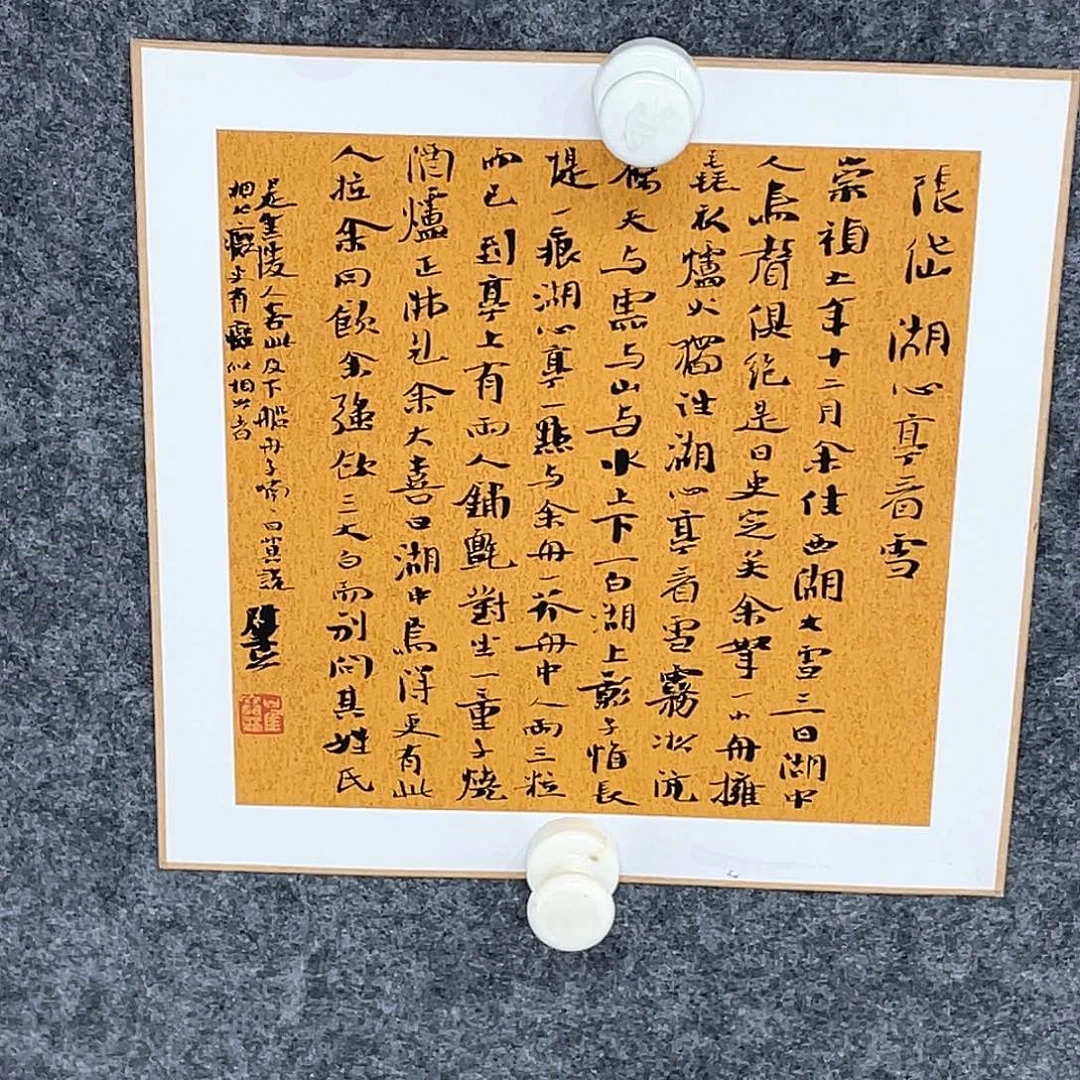 張岱湖心亭看雪
崇禎五年十二月余住西湖大雪三日湖中
人鳥聲俱絕是日更定矣余拏一小舟擁
毳衣爐火獨往湖心亭看雪霧凇沆
碭天与雲与山与水上下一白湖上影子惟長
堤一痕湖心亭一點与余舟一芥舟中人兩三粒
而已到亭上有兩人鋪氈對坐一童子燒
酒爐正沸見余大喜曰湖中焉得更有此
人拉余同飲余強飲三大白而別問其姓氏
是金陵人客此及下船舟子喃〻曰莫說
相公癡更有癡似相公者